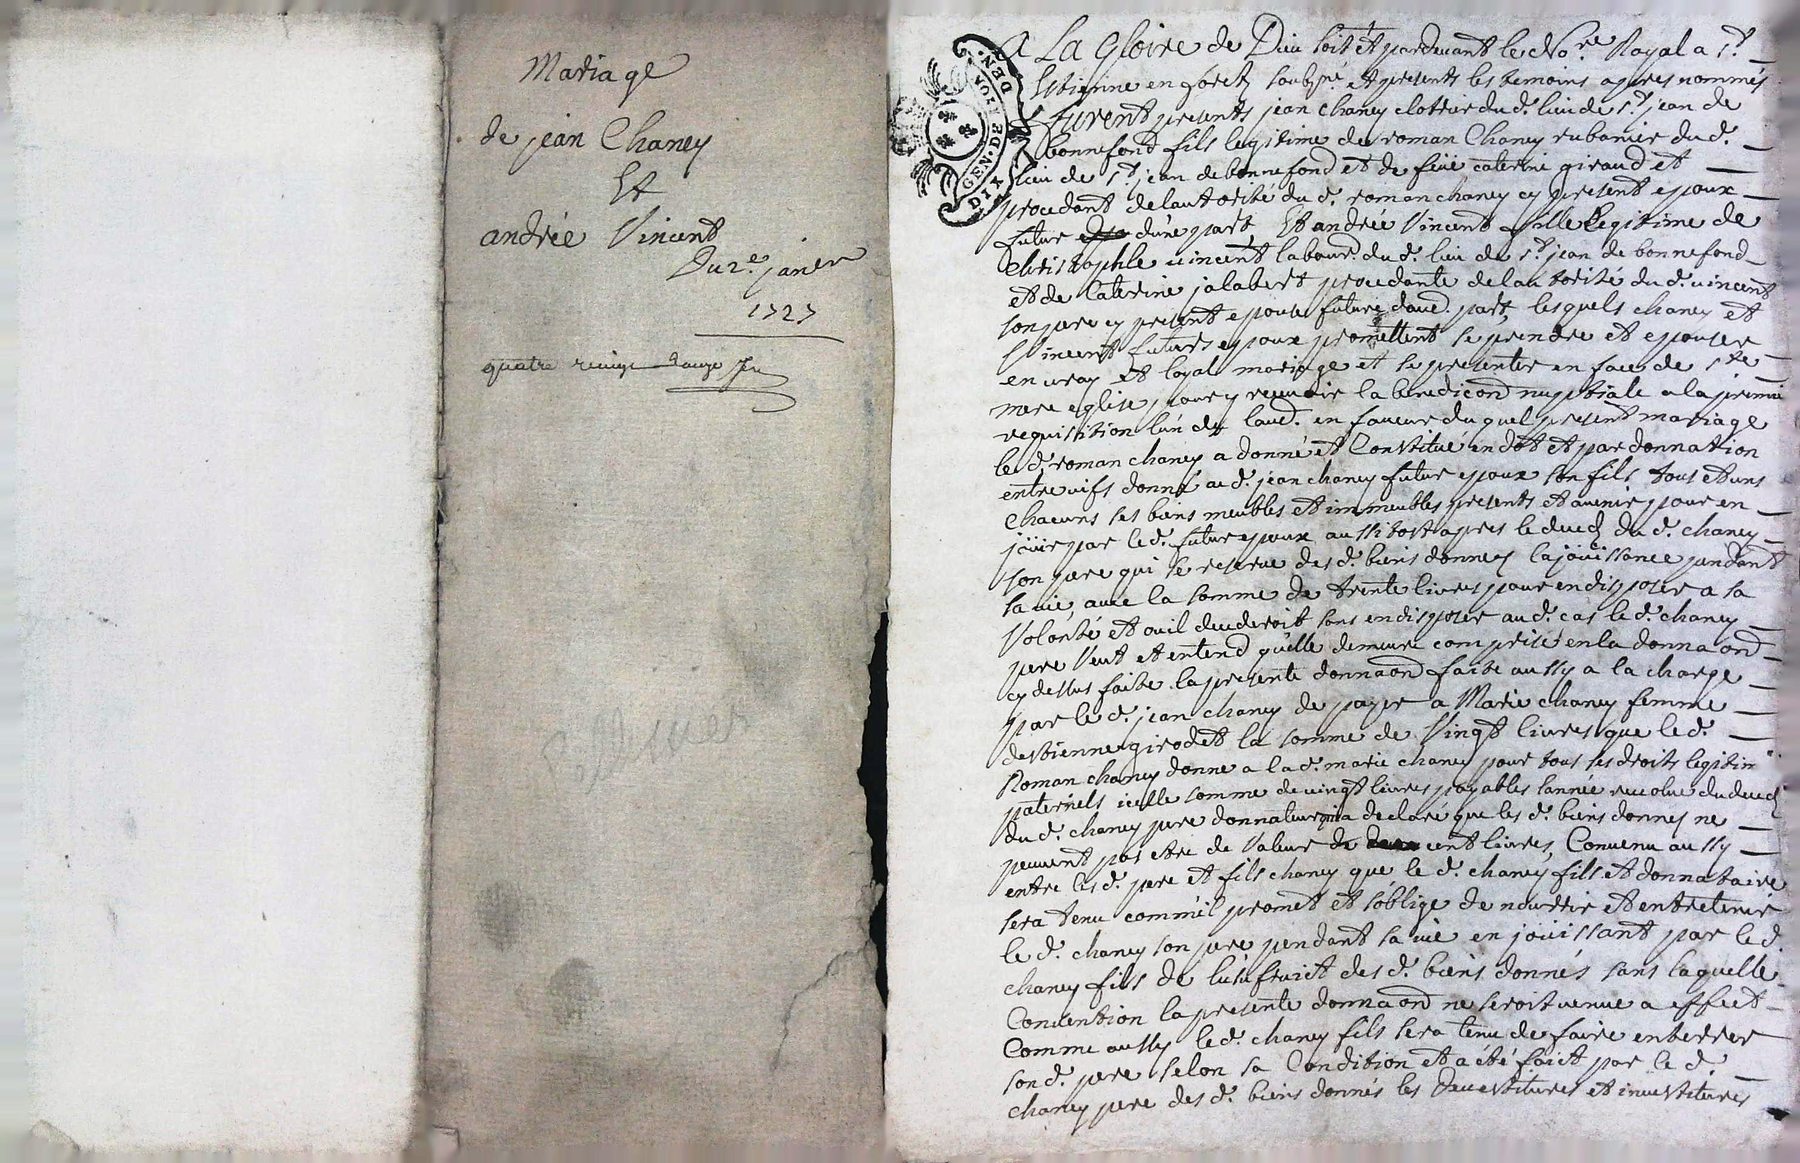 Mariage
de jean Chaney
Et
andrée Vincent
Du 2e. janer
1727
quatre
GEN·DE·
DIX DEN
A La Gloire de Dieu soit et pardevant le No.re Royal a St
Estienne en foretz soubz.né et presents les temoins apres nommés
furent presents jean chaney clottier du d. lieu de st. jean de
bonnefond fils legitime de roman Chaney rubanier du d.
lieu de st. jean de bonnefond et de feüe caterine giraud et
procedant de lautorité du d. roman chaney cy present epoux
futur dune part Et andrée Vincent fille legitime de
christophle vincent labour. du d. lieu de st. jean de bonnefond
et de Caterine jalabert procedante de lautorité du d. vincent
son pere cy present epouse future daud. part, lesquels chaney et
Vincent futurs epoux promettent se prendre et epouser
en vray et loyal mariage et se presenter en face de ste
mere eglise pour y recevoir la benedicond nuptiale a la premie
requisition lún de laud. en faveur du quel present mariage
le d. roman chaney a donné et Constitué en dot et par donnation
entre vifs donne au d. jean chaney futur epoux son fils tous et uns
Chacuns ses biens meubles et immeubles presents et avenir pour en
joüir par le d. futur epoux aussitost apres le deced du d. chaney
son pere qui se reserve des d. biens donnes la joüissance pendant
sa vie, avec la somme de trente livres pour en disposer a sa
Volonté et ou il decederoit sans en disposer au d. cas le d. chaney
pere Veut et entend quelle demeure comprise en la donnaond
cy dessus faite la presente donnaond faite aussy a la charge
par le d. jean chaney de payer a Marie chaney femme
destienne girodet la somme de Vingt livres que le d.
Roman chaney donne a la d. marie chaney pour tous ses droits legitim
paternels icelle somme de vingt livres payables lannée revolue du deced
du d. chaney pere donnateur qui a declaré que les d. biens donnes ne
peuvent pas etre de Valeur de cent livres, Convenu aussy
entre les d. pere et fils chaney que le d. chaney fils et donnataire
sera tenu comm'il promet et s'oblige de nourrir et entretenir
le d. chaney son pere pendant sa vie en jouissant par le d.
chaney fils de lusufruict des d. biens donnés sans laquelle
Convention la presente donnaond ne seroit venue a effect
Comme aussy le d. chaney fils sera tenu de faire enterrer
son d. pere selon sa Condition et a été faict par le d.
chaney pere des d. biens donnés les devestitures et investitures